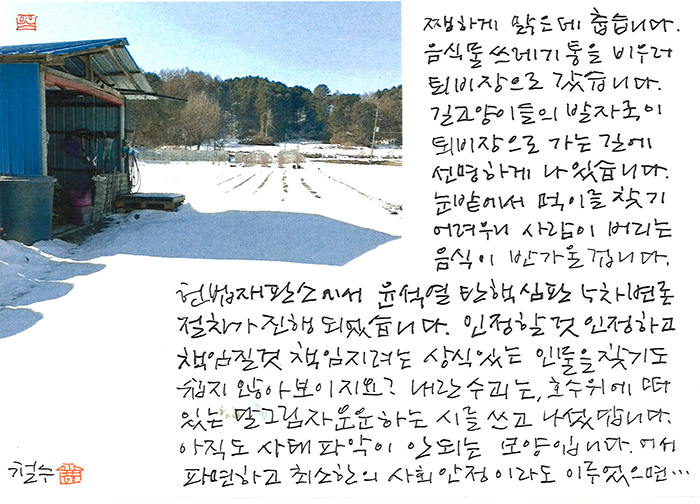 쨍하게 맑은데 춥습니다.
음식물 쓰레기통을 비우러
퇴비장으로 갔습니다.
길고양이들의 발자국이
퇴비장으로 가는 길에
선명하게 나 있습니다.
눈밭에서 먹이를 찾기
어려우니 사람이 버리는
음식이 반가울겁니다.
헌법재판소에서 윤석열 탄핵심판 4차변론
절차가 진행 되었습니다. 인정할것 인정하고
책임질것 책임지려는 상식있는 인물을 찾기도
쉽지 않아보이지요? 내란수괴는, 호수위에 떠
있는 달그림자운운하는 시를 쓰고 나섰답니다.
아직도 사태 파악이 안되는 모양입니다. 어서
파면하고 최소한의 사회안정이라도 이루었으면…
철수